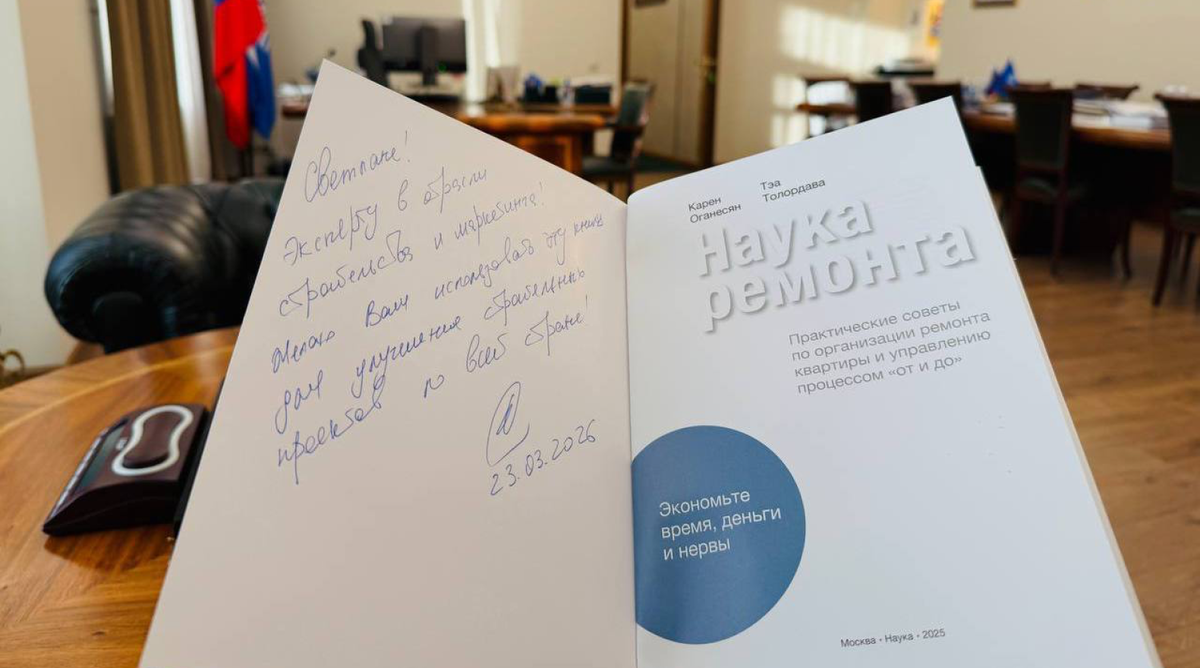 Светлане!
Эксперту в отрасли
строительства и маркетинга!
Желаю Вам использовать эту книгу
для улучшения строительных
проектов по всей стране!
23.03.2026
Карен Оганесян
Тэа Толордава
Наука
ремонта
Практические советы
по организации ремонта
квартиры и управлению
процессом «от и до»
Экономьте
время, деньги
и нервы
Москва • Наука • 2025